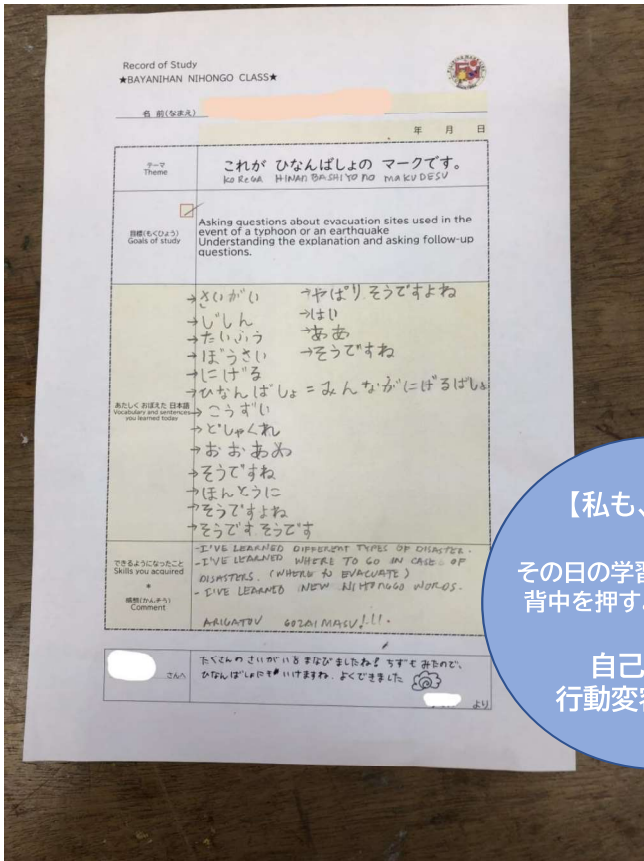 Record of Study
★BAYANIHAN NIHONGO CLASS★
名 前(なまえ)
年 月 日
テーマ
Theme
これが ひなんばしょの マークです。
KO REWA HINAN BASHIYO NO MAKU DESU
目標(もくひょう)
Goals of study
Asking questions about evacuation sites used in the
event of a typhoon or an earthquake
Understanding the explanation and asking follow-up
questions.
あたしく おぼえた 日本語
Vocabulary and sentences
you learned today
→さいがい
→じしん
→たいふう
→ぼうさい
→にげる
→ひなんばしょ=みんながにげるばしょ
→こうずい
→どしゃくれ
→おおあめ
→そうですね
→ほんとうに
→そうですよね
→そうです.そうです
→やぱり.そうですよね
→はい
→ああ
→そうですね
できるようになったこと
Skills you acquired
*
感想(かんそう)
Comment
-I'VE LEARNED DIFFERENT TYPES OF DISASTER.
-I'VE LEARNED WHERE TO GO IN CASE OF
DISASTERS. (WHERE TO EVACUATE)
- I'VE LEARNED NEW NIHONGGO WORDS.
ARIGATOU GOZAIMASU!!!.
さんへ
たくさんの さいがいを まなびましたね! ちずも みたので、
ひなんばしょにも いけますね. よくできました
より
【私も、
その日の学習
背中を押す
自己
行動変容